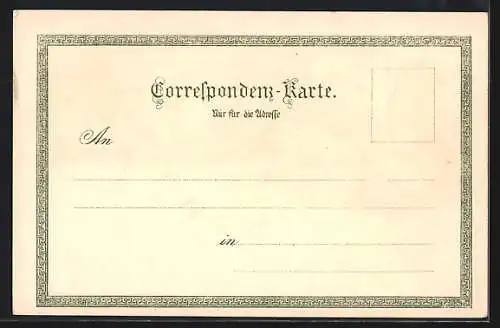 Correspondenz-Karte.
Nur für die Adresse
An
in